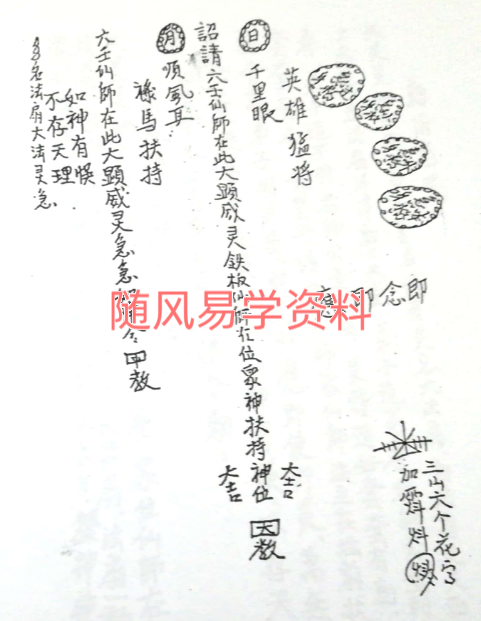 三山六个花字
加霛炓
即念即應
英雄猛将
日
千里眼
詔請六壬仙師在此大顯威灵鉄板仙師在位衆神扶持神位
大吉
大吉
天教
月
順風耳
禄馬扶持
六壬仙師在此大顯威灵急急如律令
甲教
如神有悞
不存天理
名法扇大法灵急
随风易学资料